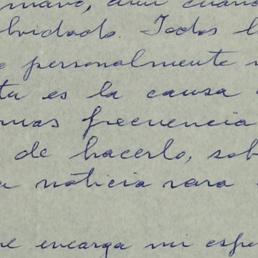 aun cuando
olvidado. Todos l
personalmente
ta es la causa
mas frecuencia
de hacerlo, sob
a noticia rara
me encarga mi espo